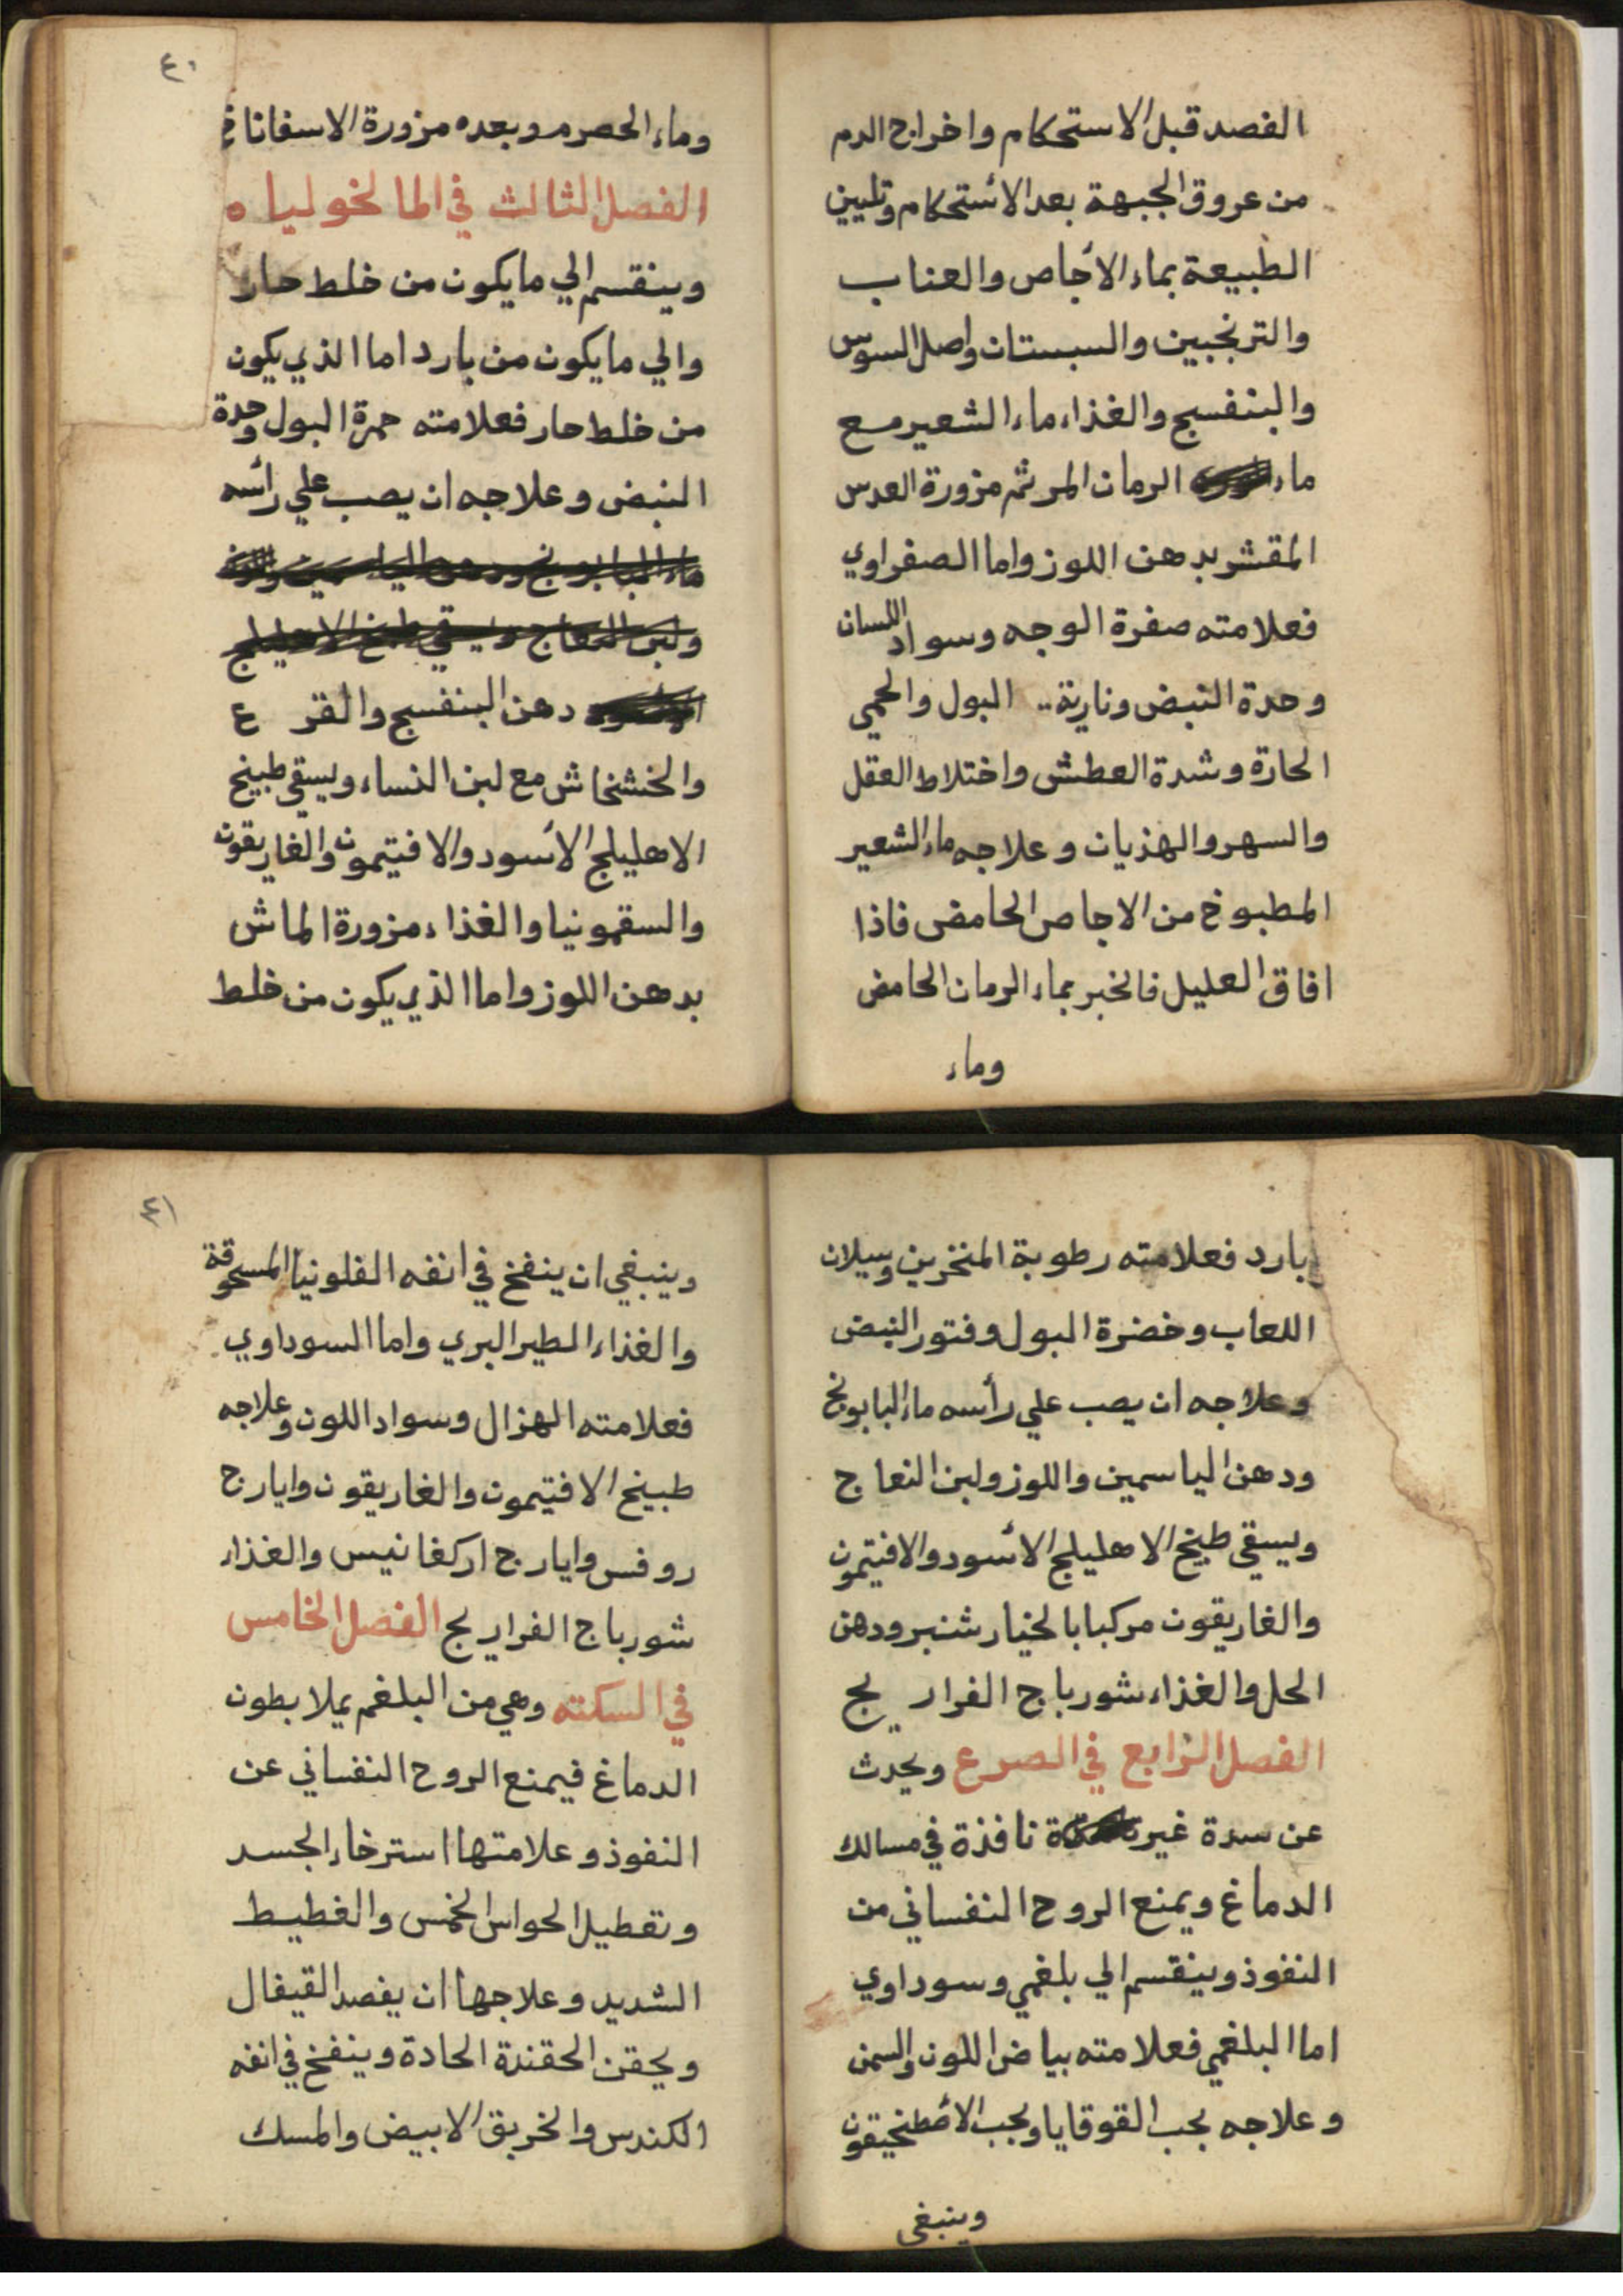 الفصد قبل الاستحكام واخراج الدم
من عروق الجبهة بعد الأستحكام وتليين
الطبيعة بماء الأجاص والعناب
والترنجبين والسبستان واصل السوس
والبنفسج والغذاء ماء الشعير مع
ماء الرمان المر ثم مزورة العدس
المقشر بدهن اللوز واما الصفراوي
فعلامته صفرة الوجه وسواد اللسان
وحدة النبض ونارية البول والحمي
الحارة وشدة العطش واختلاط العقل
والسهر والهذيان وعلاجه ماء الشعير
المطبوخ من الاجاص الحامض فاذا
افاق العليل فالخبر بماء الرمان الحامض
وماء
٤٠
وماء الحصرم وبعده مزورة الاسفاناخ
الفصل الثالث في المالخوليا ه
وينقسم الي ما يكون من خلط حار
والي ما يكون من بارد اما الذي يكون
من خلط حار فعلامته حمرة البول وحدة
النبض وعلاجه ان يصب علي رأسه
ماء البابونج ودهن الياسمين واللوز
ولبن النعاج ويسقي طبيخ الاهليلج
دهن البنفسج والقرع
والخشخاش مع لبن النساء ويسقي طبيخ
الاهليلج الأسود والافتيمون والغاريقون
والسقمونيا والغذاء مزورة الماش
بدهن اللوز واما الذي يكون من خلط
بارد فعلامته رطوبة المنخرين وسيلان
اللعاب وخضرة البول وفتور النبض
وعلاجه ان يصب علي رأسه ماء البابونج
ودهن الياسمين واللوز ولبن النعاج
ويسقي طبيخ الاهليلج الأسود والافتيمون
والغاريقون مركبا بالخيار شنبر ودهن
الحل والغذاء شورباج الفراريج
الفصل الرابع في الصرع ويحدث
عن سدة غير نافذة في مسالك
الدماغ ويمنع الروح النفساني من
النفوذ وينقسم الي بلغمي وسوداوي
اما البلغمي فعلامته بياض اللون والسمن
وعلاجه بحب القوقايا وبحب الأصطنحيقون
وينبغي
٤١
وينبغي ان ينفخ في انفه الفلونيا المسحوقة
والغذاء الطير البري واما السوداوي
فعلامته الهزال وسواد اللون وعلاجه
طبيخ الافتيمون والغاريقون وايارج
روفس وايارج اركغانيس والغذاء
شورباج الفراريج الفصل الخامس
في السكته وهي من البلغم يملا بطون
الدماغ فيمنع الروح النفساني عن
النفوذ وعلامتها استرخاء الجسد
وتعطيل الحواس الخمس والغطيط
الشديد وعلاجها ان يفصد القيفال
ويحقن الحقنة الحادة وينفخ في انفه
الكندس والخربق الابيض والمسك